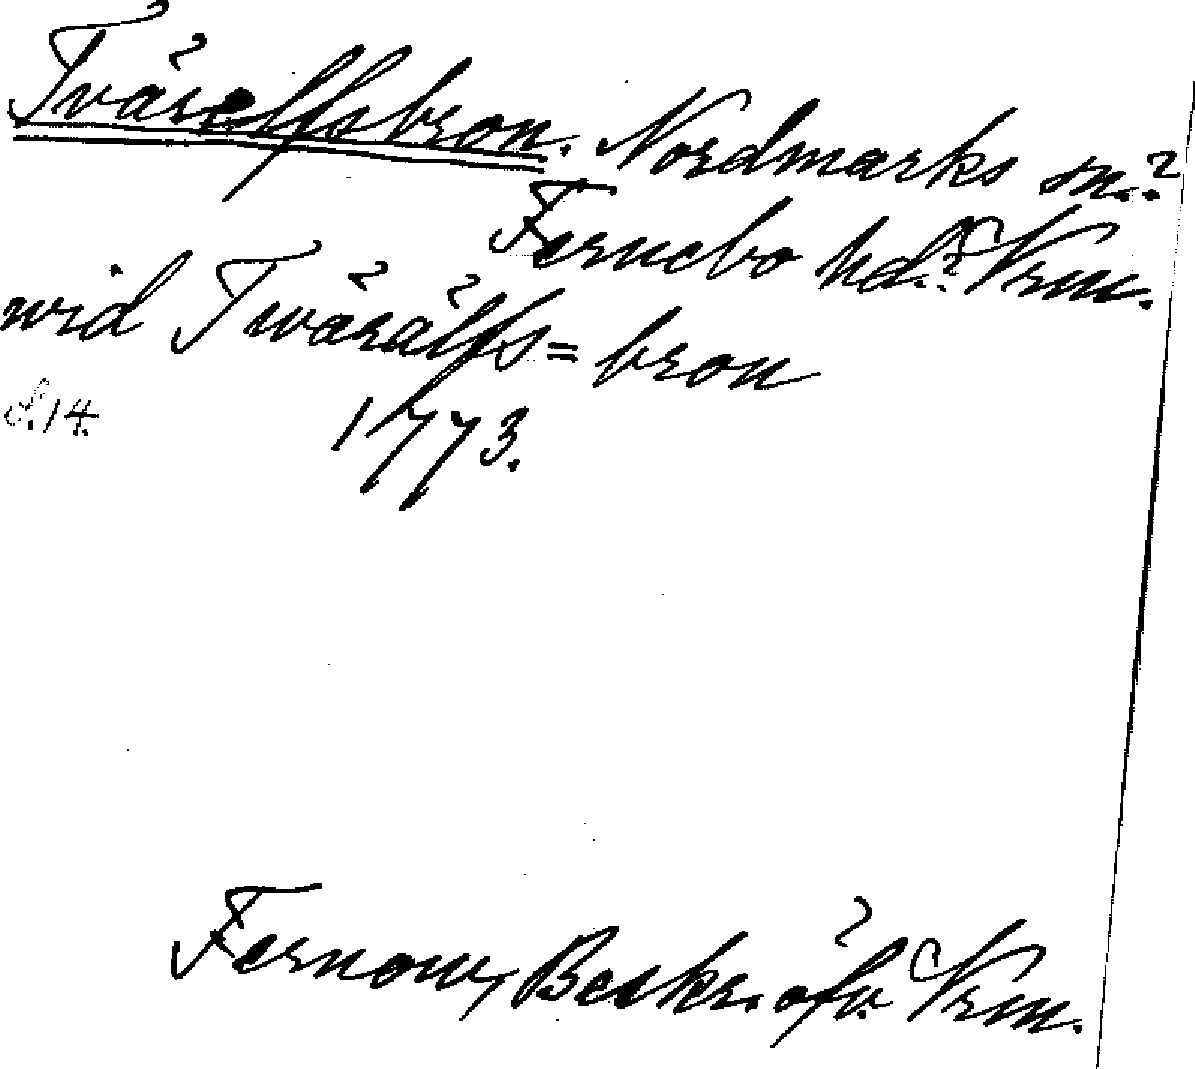 Tvärelfsbron. Nordmarks sn.?
Fernebo hd.? Vrm.
wid Twärälfs=bron
d. 14. 1773.
Fernow, Beskr. öfv. Vrm.